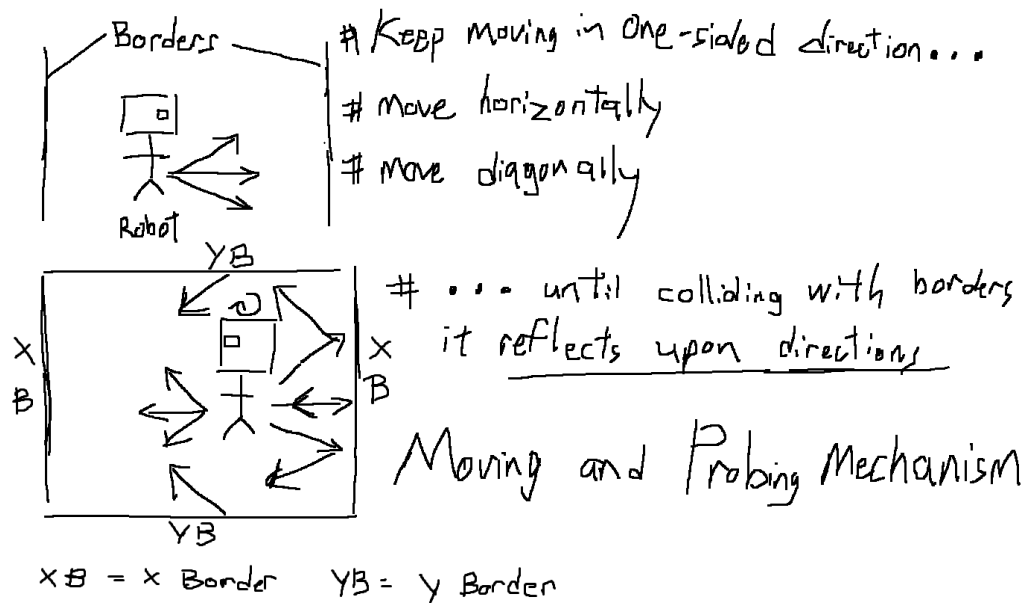 Borders
# Keep moving in one-sided direction...
# move horizontally
# move diagonally
Robot
YB
# ... until colliding with borders
it reflects upon directions
X
B
X
B
Moving and Probing Mechanism
YB
XB = X Border YB = Y Border